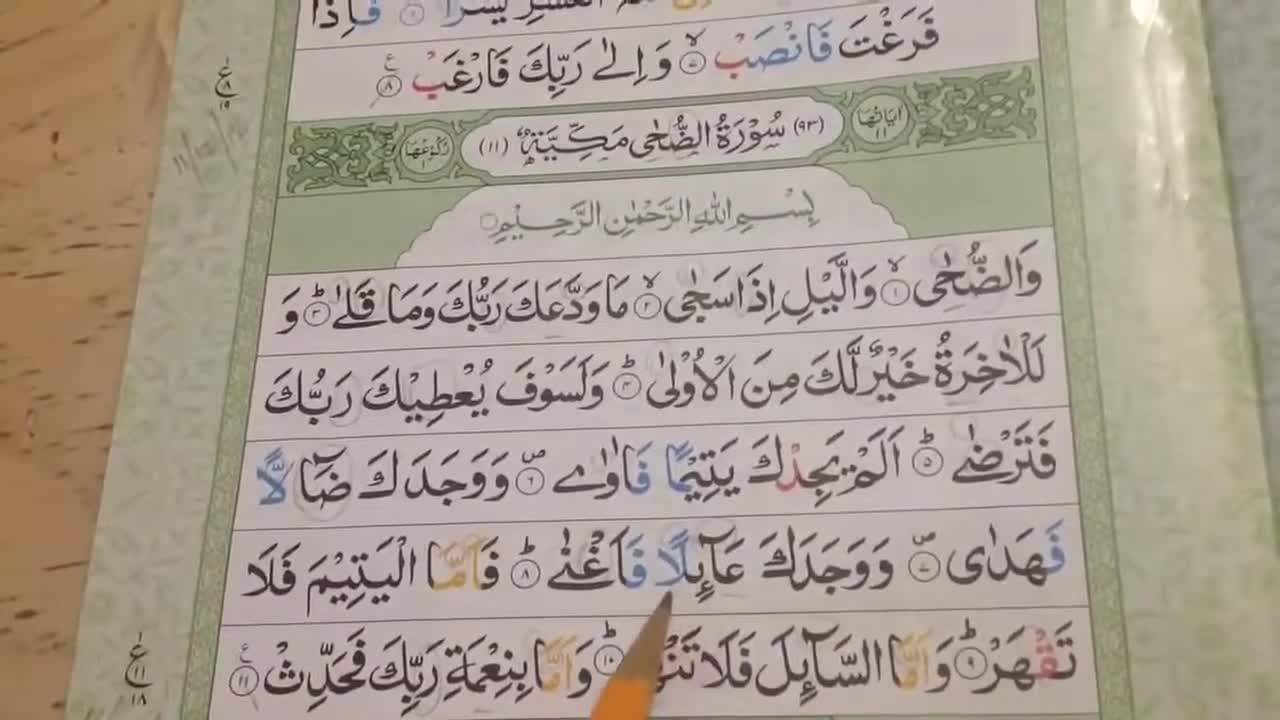 الْعُسْرِ يُسْرًا ۟ فَاِذَا
فَرَغْتَ فَانْصَبْ ۙ۷ وَاِلٰی رَبِّكَ فَارْغَبْ ۸
ع ۱ ۸ ۱۹
اٰيَاتُهَا ۱۱ (۹۳) سُوْرَةُ الضُّحٰی مَكِّيَّةٌ (۱۱) رُكُوْعُهَا ۱
بِسْمِ اللهِ الرَّحْمٰنِ الرَّحِيْمِ
وَالضُّحٰی ۙ۱ وَالَّيْلِ اِذَا سَجٰی ۙ۲ مَا وَدَّعَكَ رَبُّكَ وَمَا قَلٰی ؕ۳ وَ
لَلْاٰخِرَةُ خَيْرٌ لَّكَ مِنَ الْاُوْلٰی ؕ۴ وَلَسَوْفَ يُعْطِيْكَ رَبُّكَ
فَتَرْضٰی ؕ۵ اَلَمْ يَجِدْكَ يَتِيْمًا فَاٰوٰی ۪۶ وَوَجَدَكَ ضَآلًّا
فَهَدٰی ۪۷ وَوَجَدَكَ عَآئِلًا فَاَغْنٰی ؕ۸ فَاَمَّا الْيَتِيْمَ فَلَا
تَقْهَرْ ؕ۹ وَاَمَّا السَّآئِلَ فَلَا ؕ۱۰ وَاَمَّا بِنِعْمَةِ رَبِّكَ فَحَدِّثْ ۱۱
ع ۱ ۱۱ ۱۸